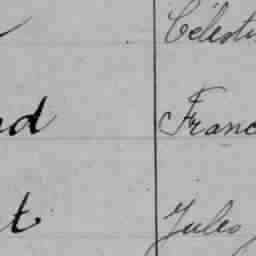 Célesti
nd Franc
t Jules